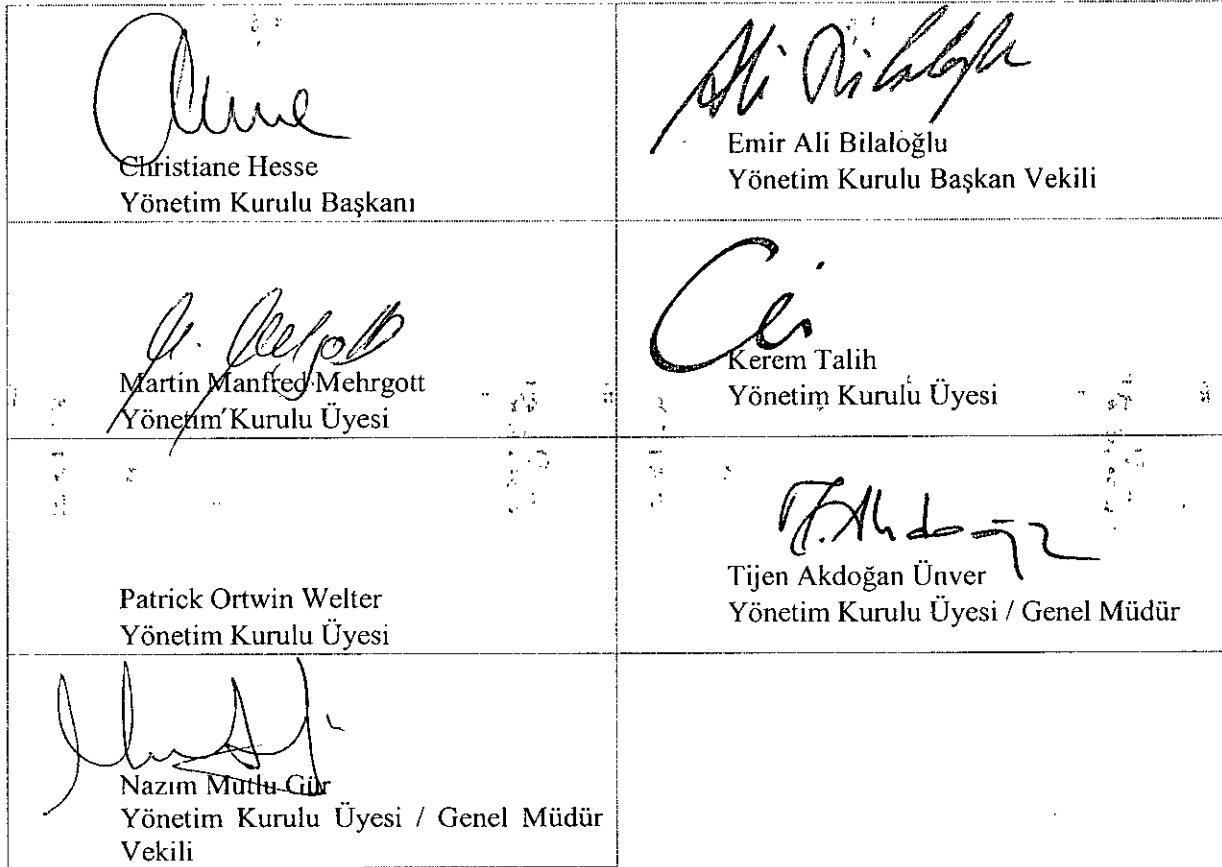 Christiane Hesse
Yönetim Kurulu Başkanı
Ali Bilaloğlu
Emir Ali Bilaloğlu
Yönetim Kurulu Başkan Vekili
Martin Manfred Mehrgott
Yönetim Kurulu Üyesi
Kerem Talih
Yönetim Kurulu Üyesi
Patrick Ortwin Welter
Yönetim Kurulu Üyesi
T. Akdoğ
Tijen Akdoğan Ünver
Yönetim Kurulu Üyesi / Genel Müdür
Nazım Mutlu Gür
Yönetim Kurulu Üyesi / Genel Müdür
Vekili